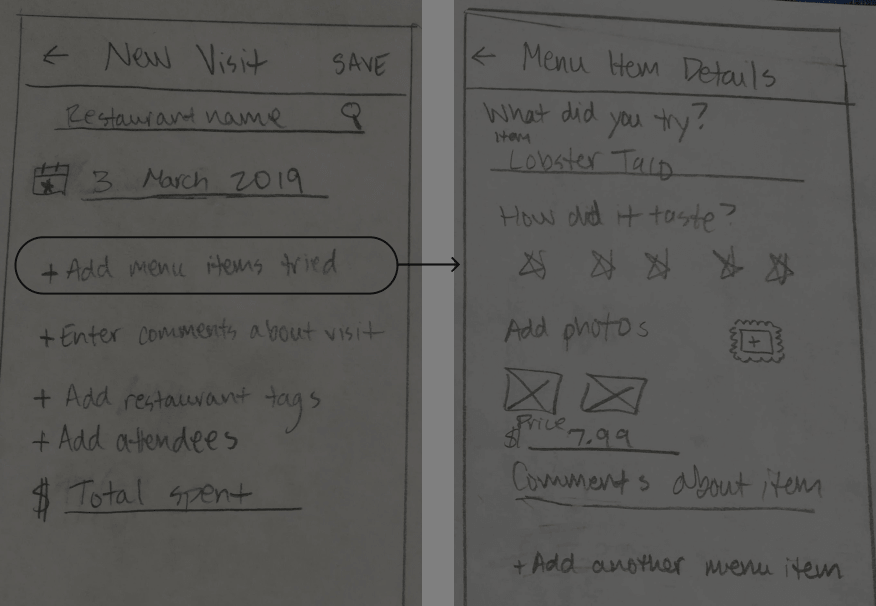 ← New Visit SAVE
Restaurant name
3 March 2019
+ Add menu items tried
+ Enter comments about visit
+ Add restaurant tags
+ Add attendees
$ Total spent
← Menu Item Details
What did you try?
item
Lobster Taco
How did it taste?
Add photos
+
Price
$ 7.99
Comments about item
+ Add another menu item